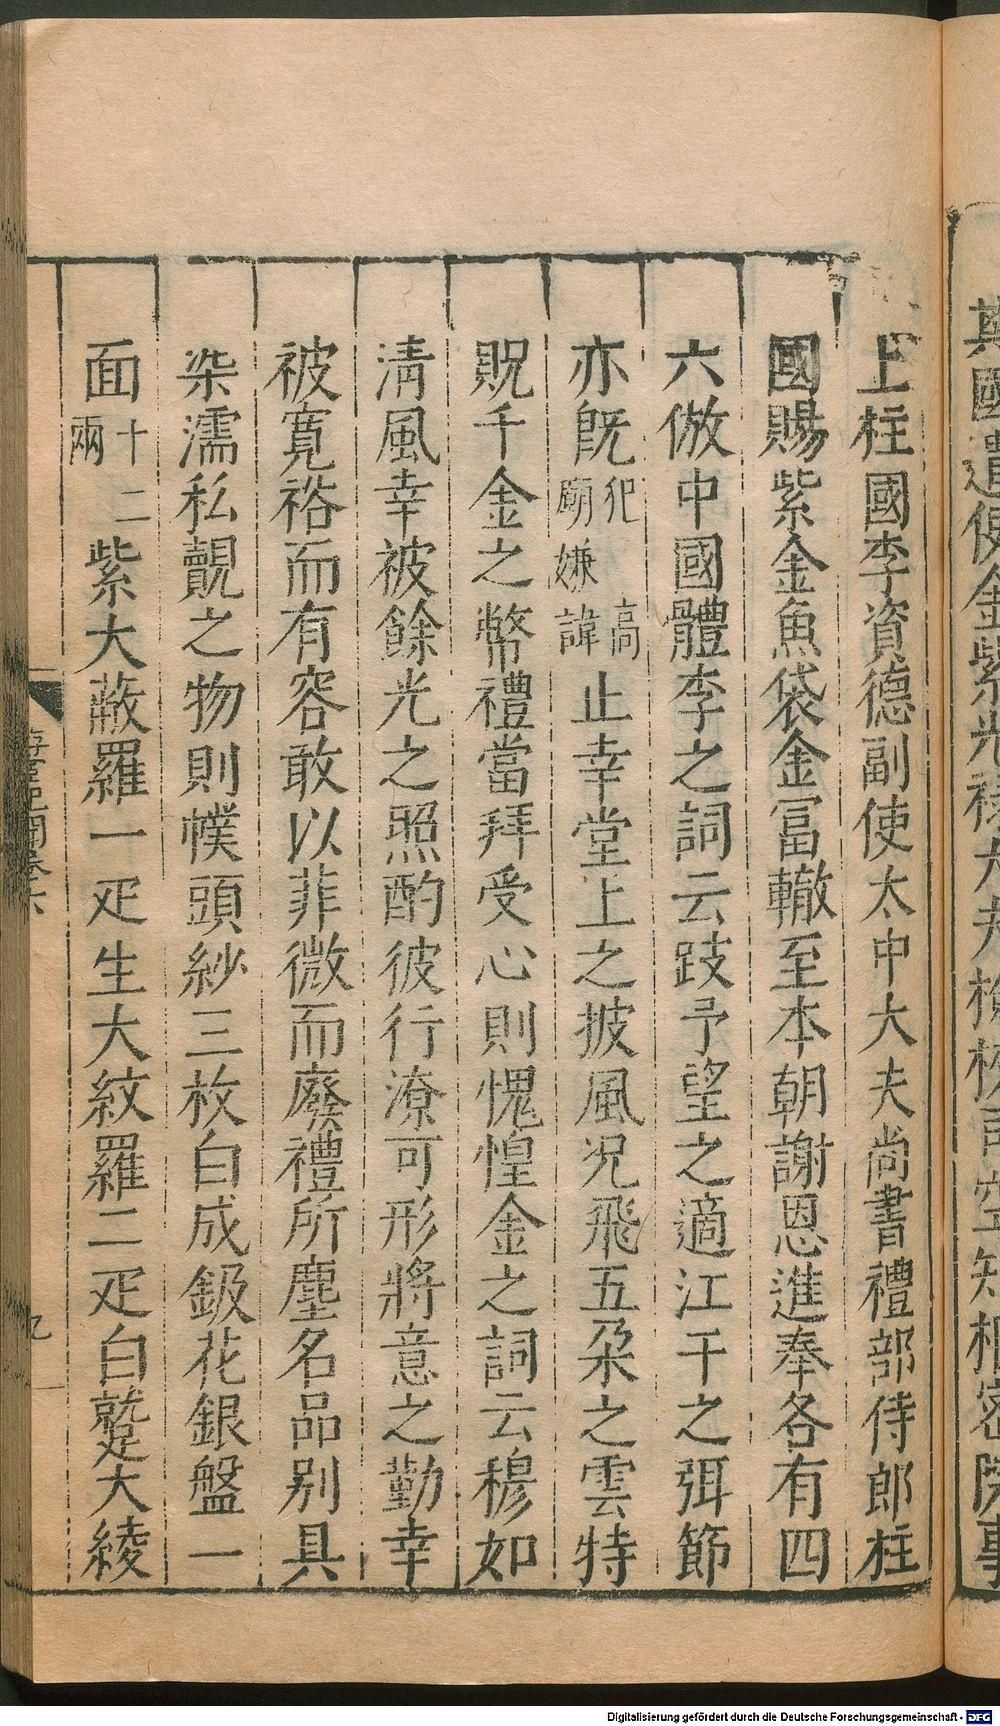 其國遣使金紫光祿大夫檢校司空知樞密院事
上柱國李資德副使太中大夫尚書禮部侍郎柱
國賜紫金魚袋金冨轍至本朝謝恩進奉各有四
六倣中國體李之詞云跂予望之適江干之弭節
亦旣犯廟嫌高諱止幸堂上之披風况飛五朶之雲特
貺千金之幣禮當拜受心則愧惶金之詞云穆如
清風幸被餘光之照酌彼行潦可形將意之勤幸
被寛裕而有容敢以菲微而廢禮所塵名品別具
染濡私覿之物則幞頭紗三枚白成鈒花銀盤一
面十二兩紫大蔽羅一疋生大紋羅二疋白蹵大綾
九
Digitalisierung gefördert durch die Deutsche Forschungsgemeinschaft - DFG